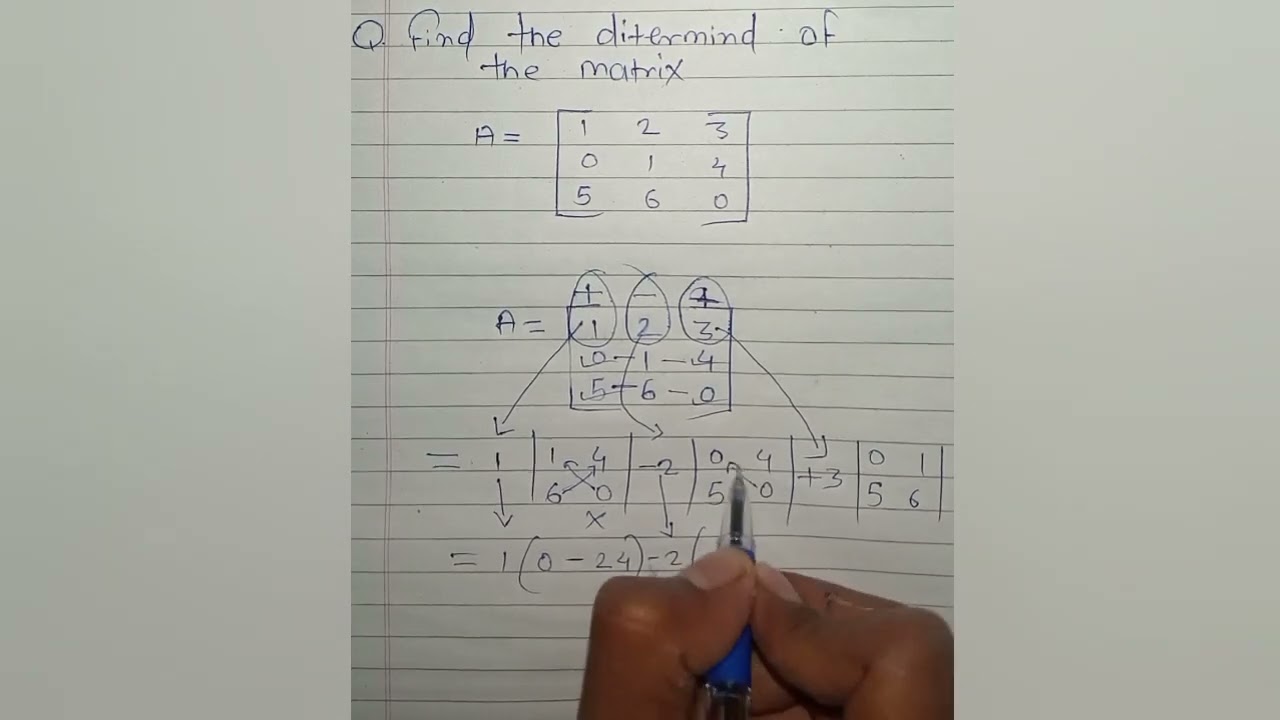 Q. Find the ditermind of
the matrix
A = 1 2 3
0 1 4
5 6 0
+ − +
A = 1 2 3
0 − 1 − 4
5 − 6 − 0
= 1 | 1 4 | −2 | 0 4 | +3 | 0 1 |
6 0 5 0 5 6
×
= 1 (0 − 24) − 2 (